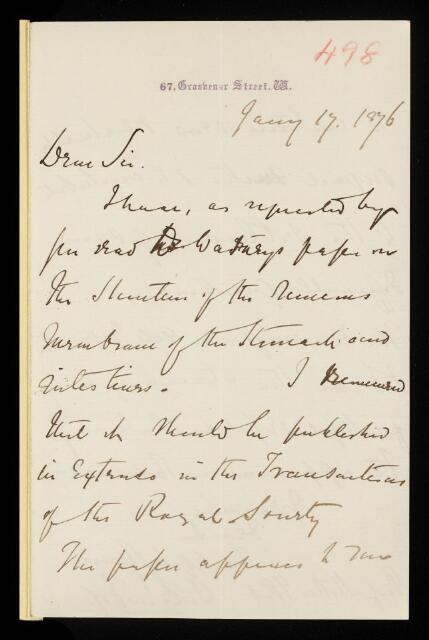 498
67, Grosvenor Street. W.
Jany 17. 1876
Dear Sir.
I have, as requested by
you read Dr Watney's paper on
the Structure of the Mucous
Membrane of the Stomach and
intestines. I recommend
that it should be published
in Extenso in the Transactions
of the Royal Society
The paper appears to me